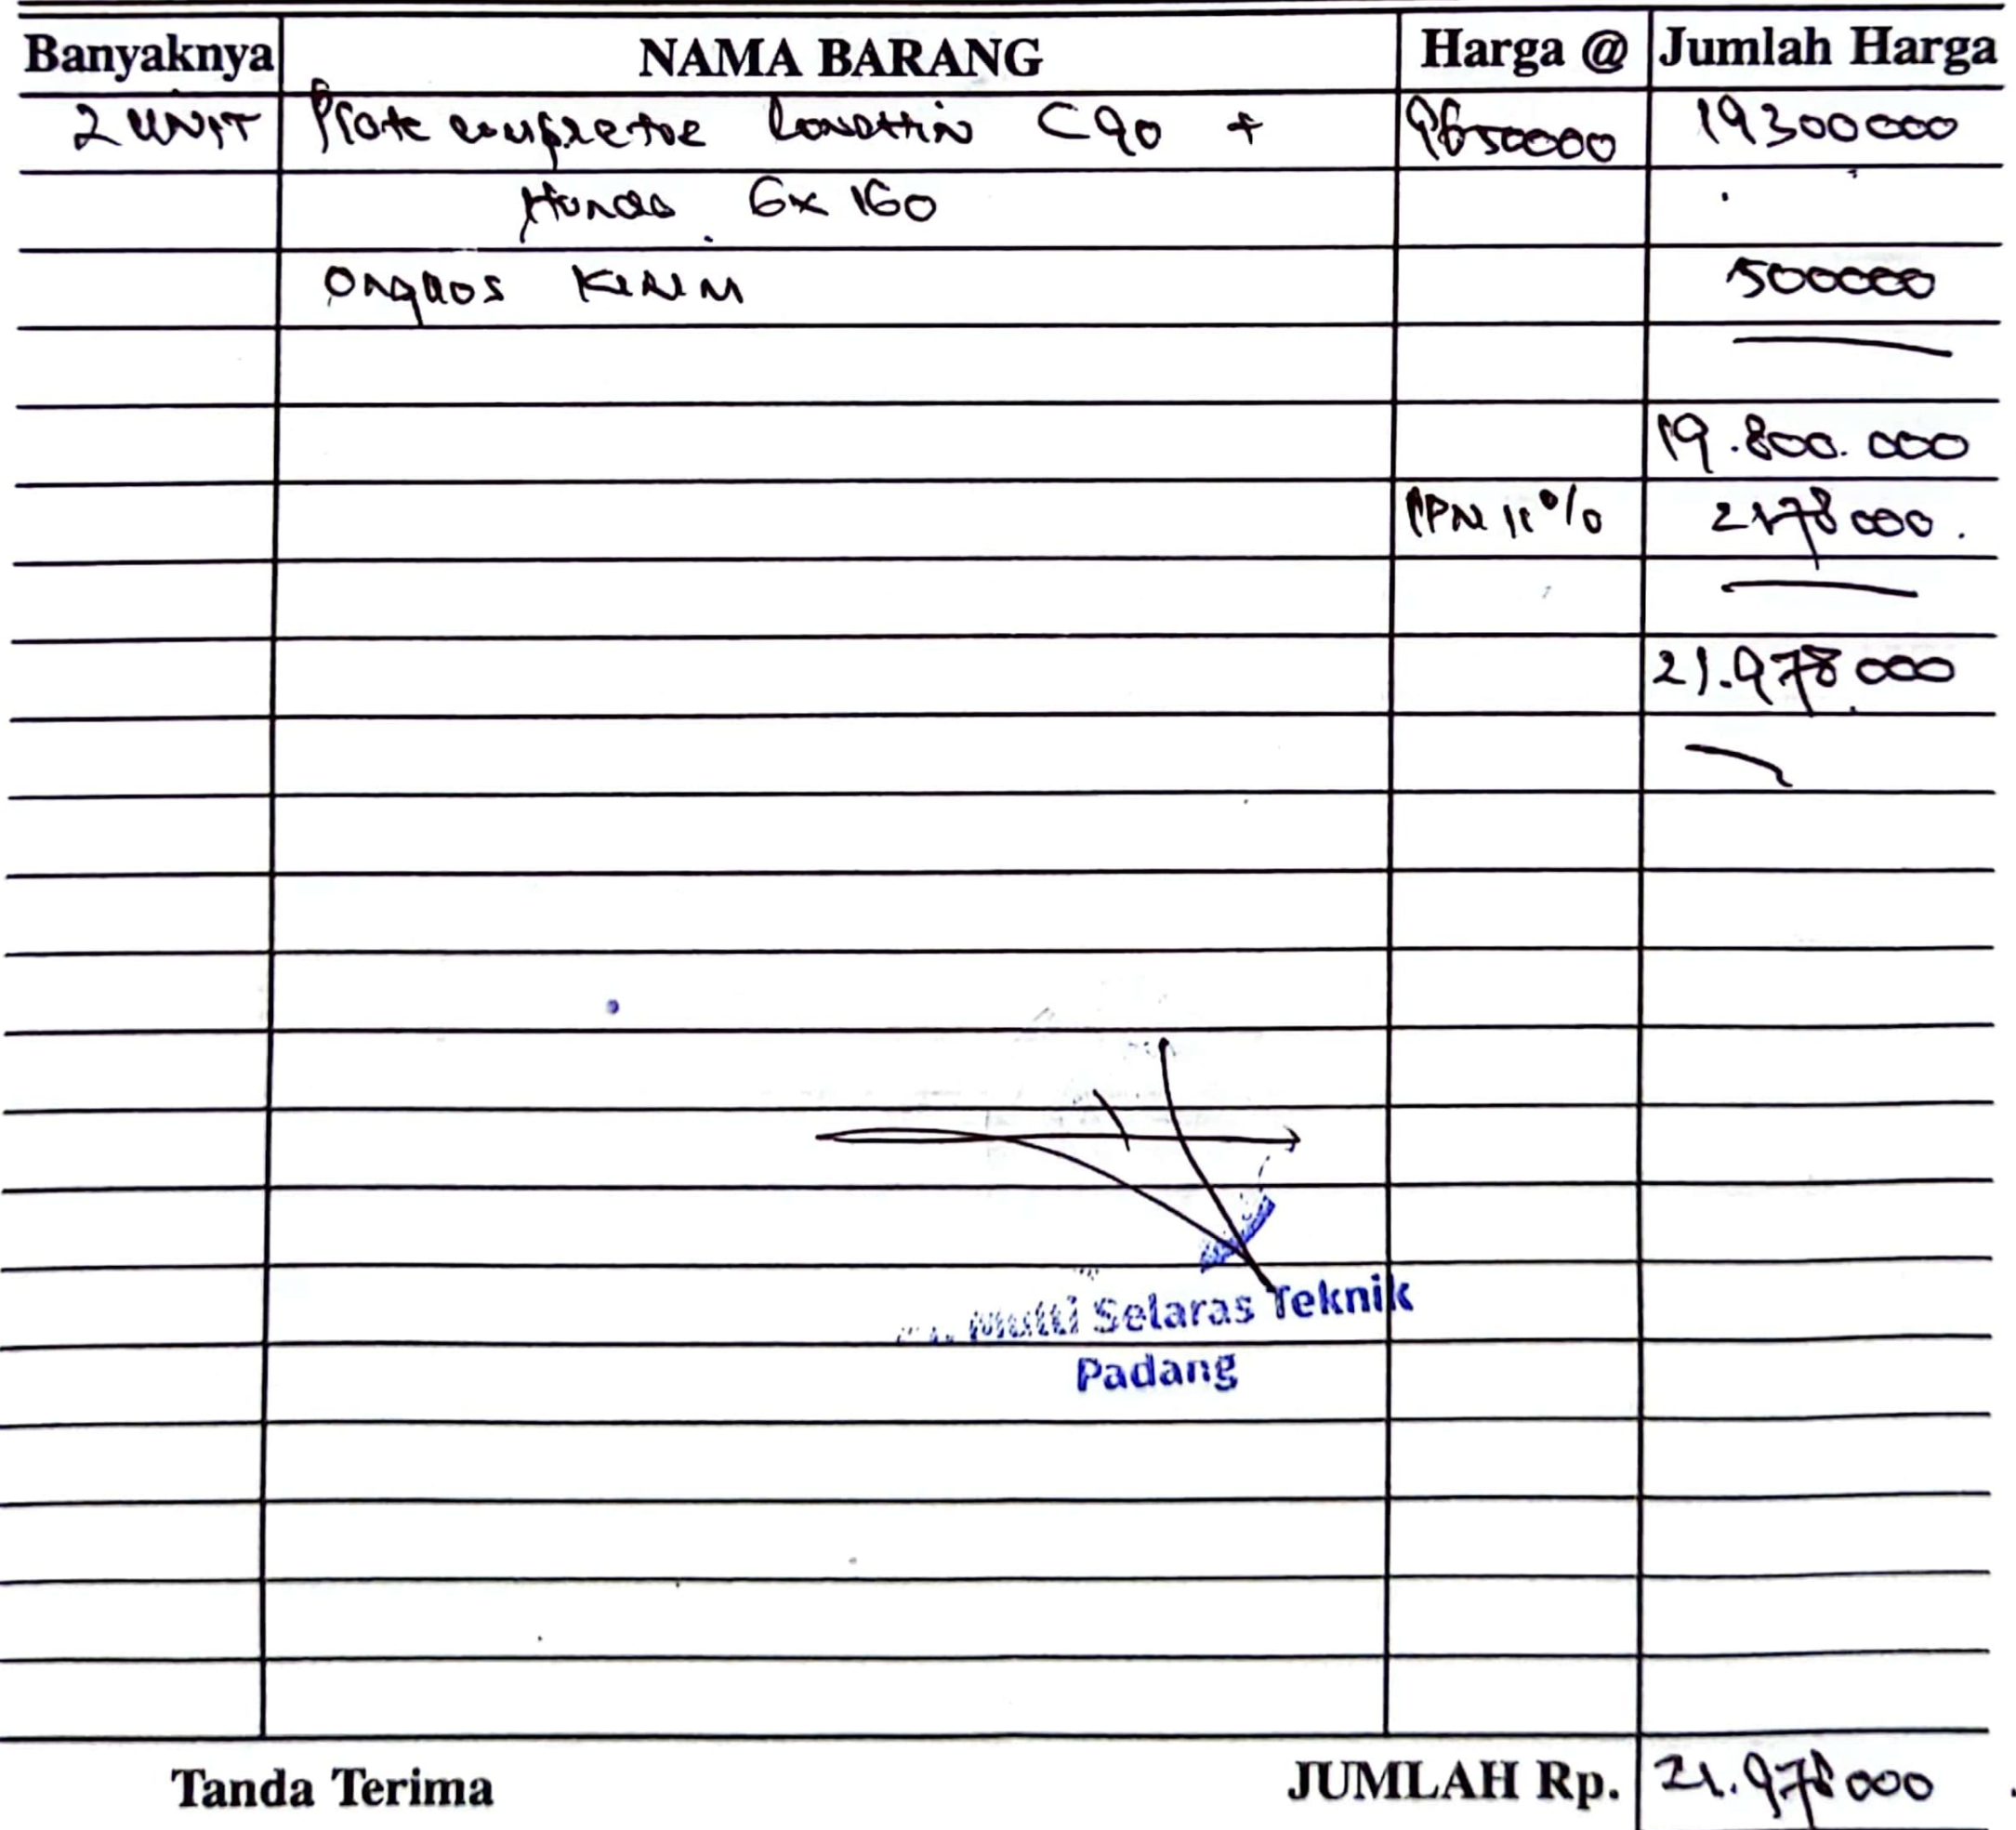 Banyaknya NAMA BARANG Harga @ Jumlah Harga
2 UNIT Plate C90 + 9650000 19300000
Honda Gx 160
Ongkos Kirim 500000
19.800.000
PPN 11% 2178000.
21.978.000
Multi Selaras Teknik
Padang
Tanda Terima JUMLAH Rp. 21.978000